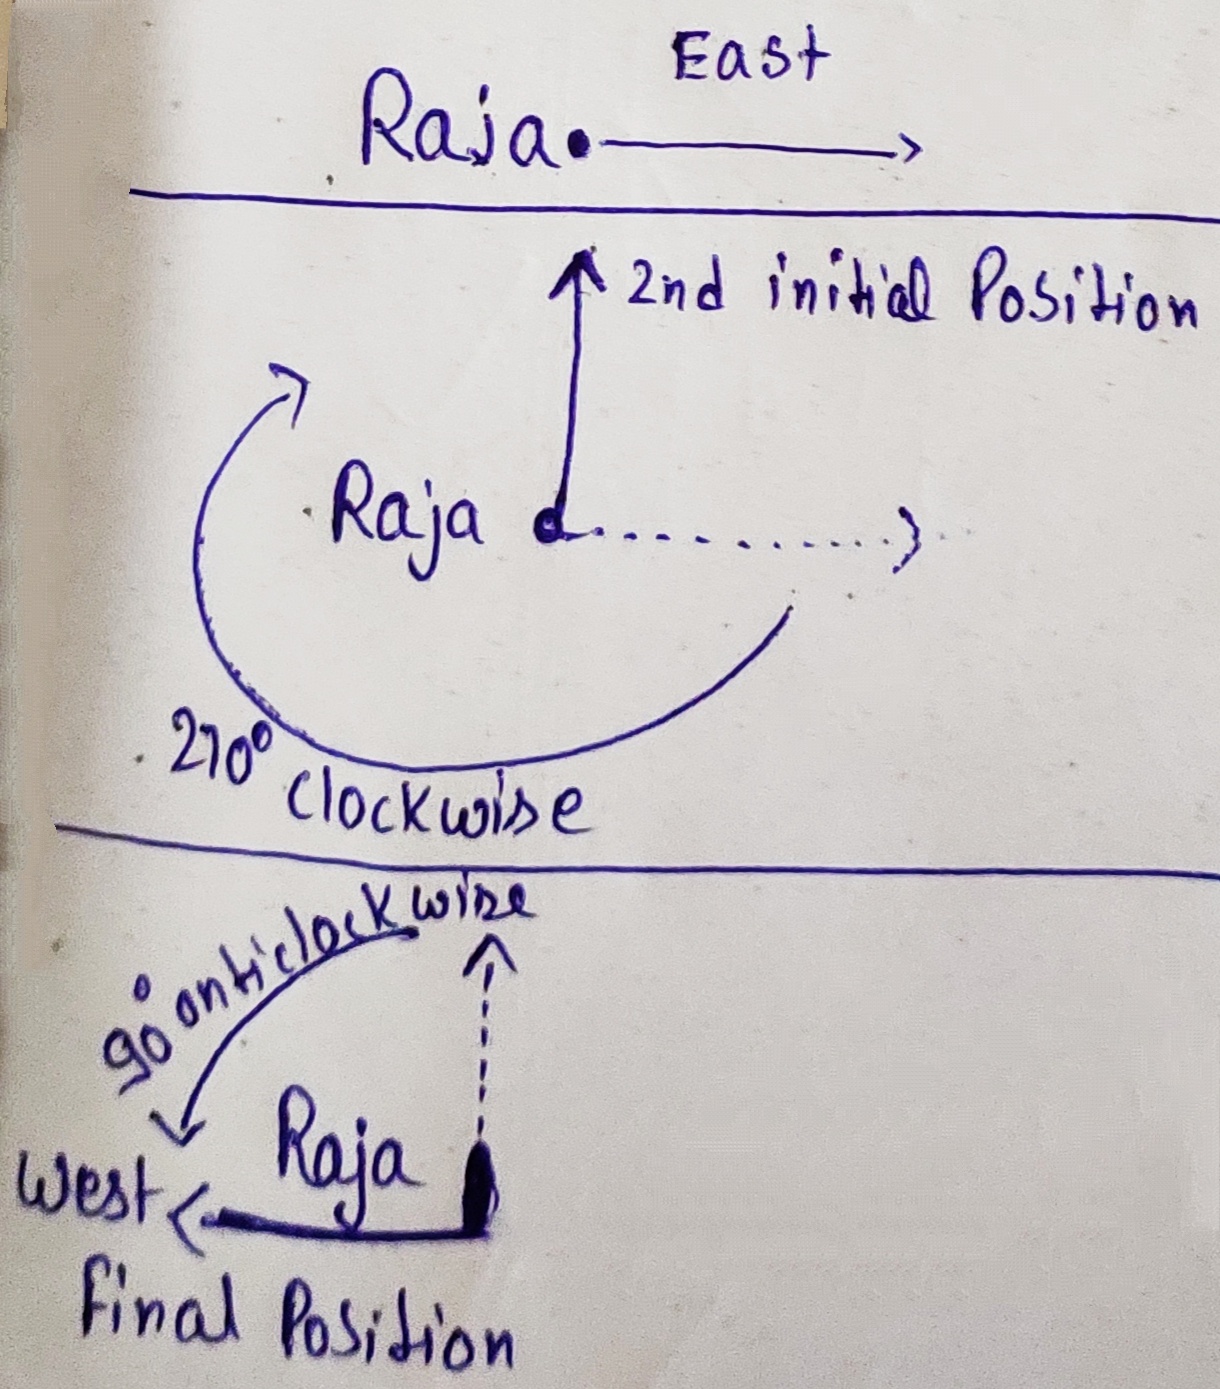 East
Raja
2nd initial Position
Raja
270° clockwise
90° anticlockwise
Raja
West
Final Position